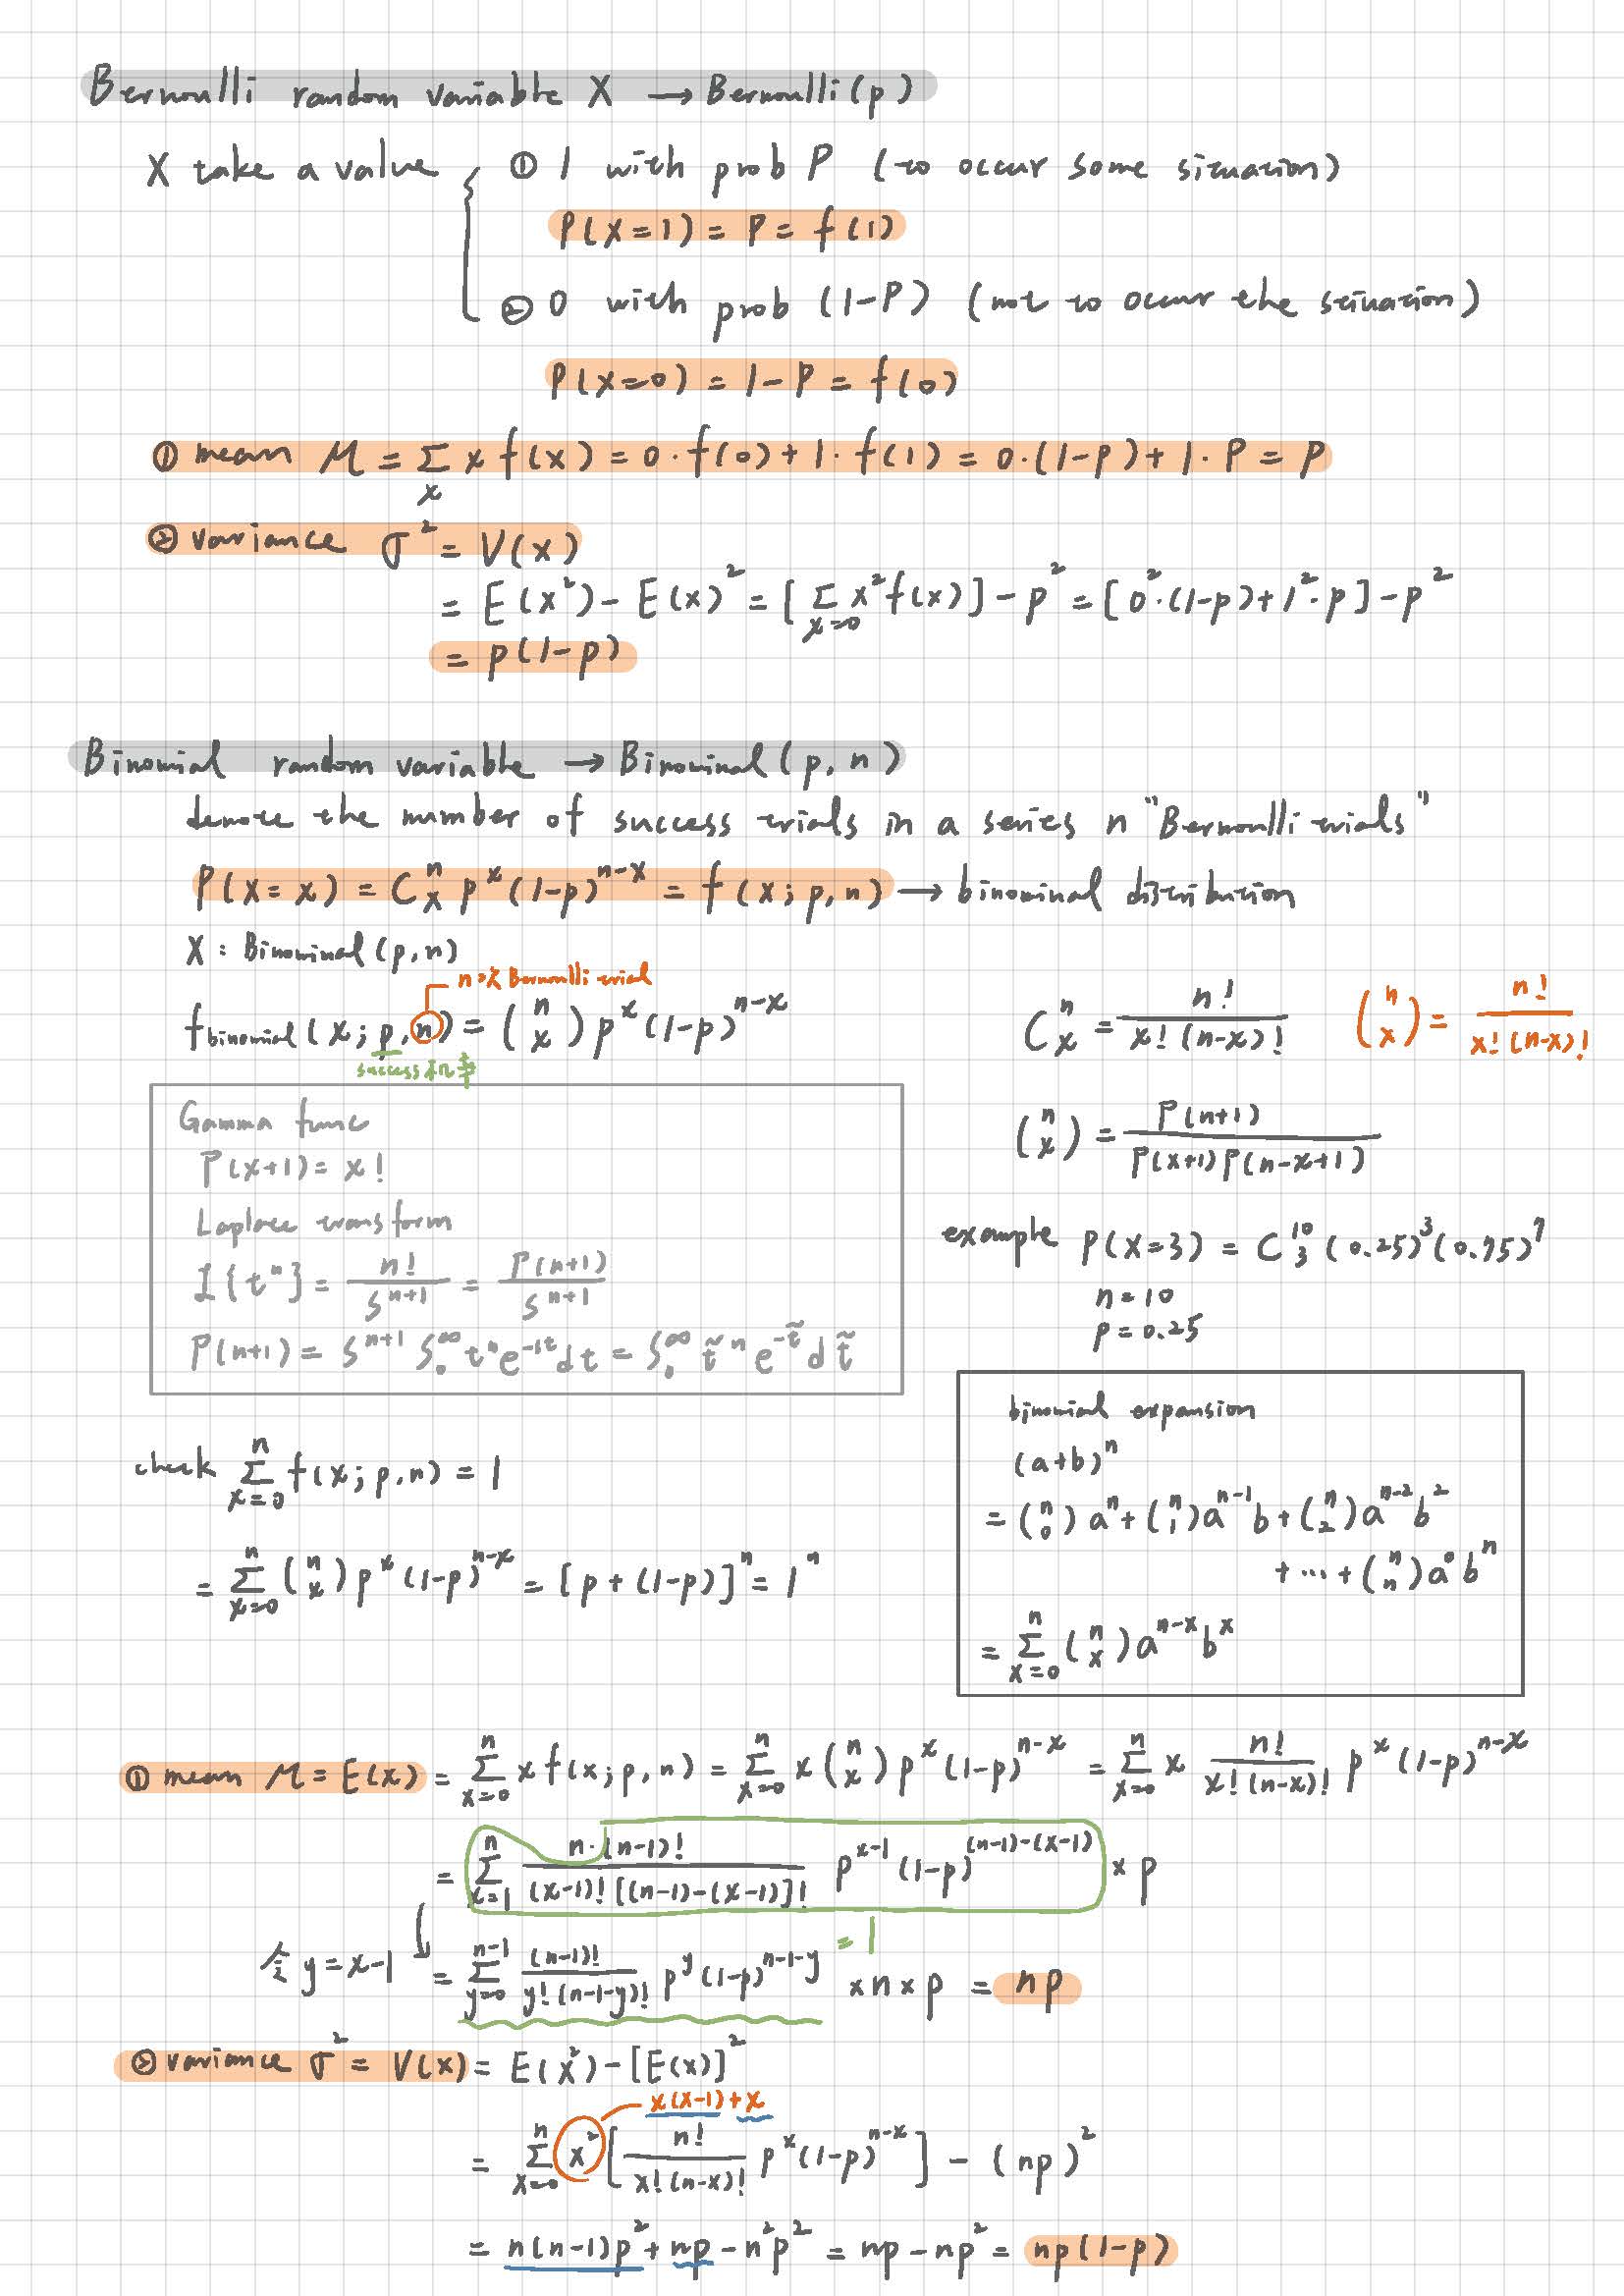 Bernoulli random variable X → Bernoulli(p)
X take a value { ① 1 with prob P (to occur some situation)
P(X=1) = P = f(1)
② 0 with prob (1-P) (not to occur the situation)
P(X=0) = 1-P = f(0)
① mean μ = Σ_x x f(x) = 0·f(0) + 1·f(1) = 0·(1-p) + 1·P = P
② variance σ² = V(x)
= E(x²) - E(x)² = [Σ_{x=0} x² f(x)] - p² = [0²·(1-p) + 1²·p] - p²
= p(1-p)
Binomial random variable → Binominal(p, n)
denote the number of success trials in a series n "Bernoulli trials"
P(X=x) = C^n_x p^x (1-p)^{n-x} = f(x; p, n) → binominal distribution
X : Binominal(p, n)
n次 Bernoulli trial
f_binomial(x; p, n) = (n x) p^x (1-p)^{n-x}
success 机率
C^n_x = n! / x!(n-x)!
(n x) = n! / x!(n-x)!
(n x) = Γ(n+1) / Γ(x+1)Γ(n-x+1)
Gamma func
Γ(x+1) = x!
Laplace transform
ℒ{t^n} = n! / s^{n+1} = Γ(n+1) / s^{n+1}
Γ(n+1) = s^{n+1} ∫_0^∞ t^n e^{-st} dt = ∫_0^∞ t̃^n e^{-t̃} dt̃
example P(X=3) = C^10_3 (0.25)^3 (0.75)^7
n = 10
p = 0.25
binomial expansion
(a+b)^n
= (n 0) a^n + (n 1) a^{n-1} b + (n 2) a^{n-2} b²
+ ⋯ + (n n) a^0 b^n
= Σ_{x=0}^n (n x) a^{n-x} b^x
check Σ_{x=0}^n f(x; p, n) = 1
= Σ_{x=0}^n (n x) p^x (1-p)^{n-x} = [p + (1-p)]^n = 1^n
① mean μ = E(x) = Σ_{x=0}^n x f(x; p, n) = Σ_{x=0}^n x (n x) p^x (1-p)^{n-x} = Σ_{x=0}^n x n! / x!(n-x)! p^x (1-p)^{n-x}
= Σ_{x=1}^n n·(n-1)! / (x-1)![(n-1)-(x-1)]! p^{x-1} (1-p)^{(n-1)-(x-1)} × p
= 1
令 y = x-1 = Σ_{y=0}^{n-1} (n-1)! / y!(n-1-y)! p^y (1-p)^{n-1-y} × n × p = np
② variance σ² = V(x) = E(x²) - [E(x)]²
x(x-1) + x
= Σ_{x=0}^n x² [n! / x!(n-x)! p^x (1-p)^{n-x}] - (np)²
= n(n-1)p² + np - n²p² = np - np² = np(1-p)